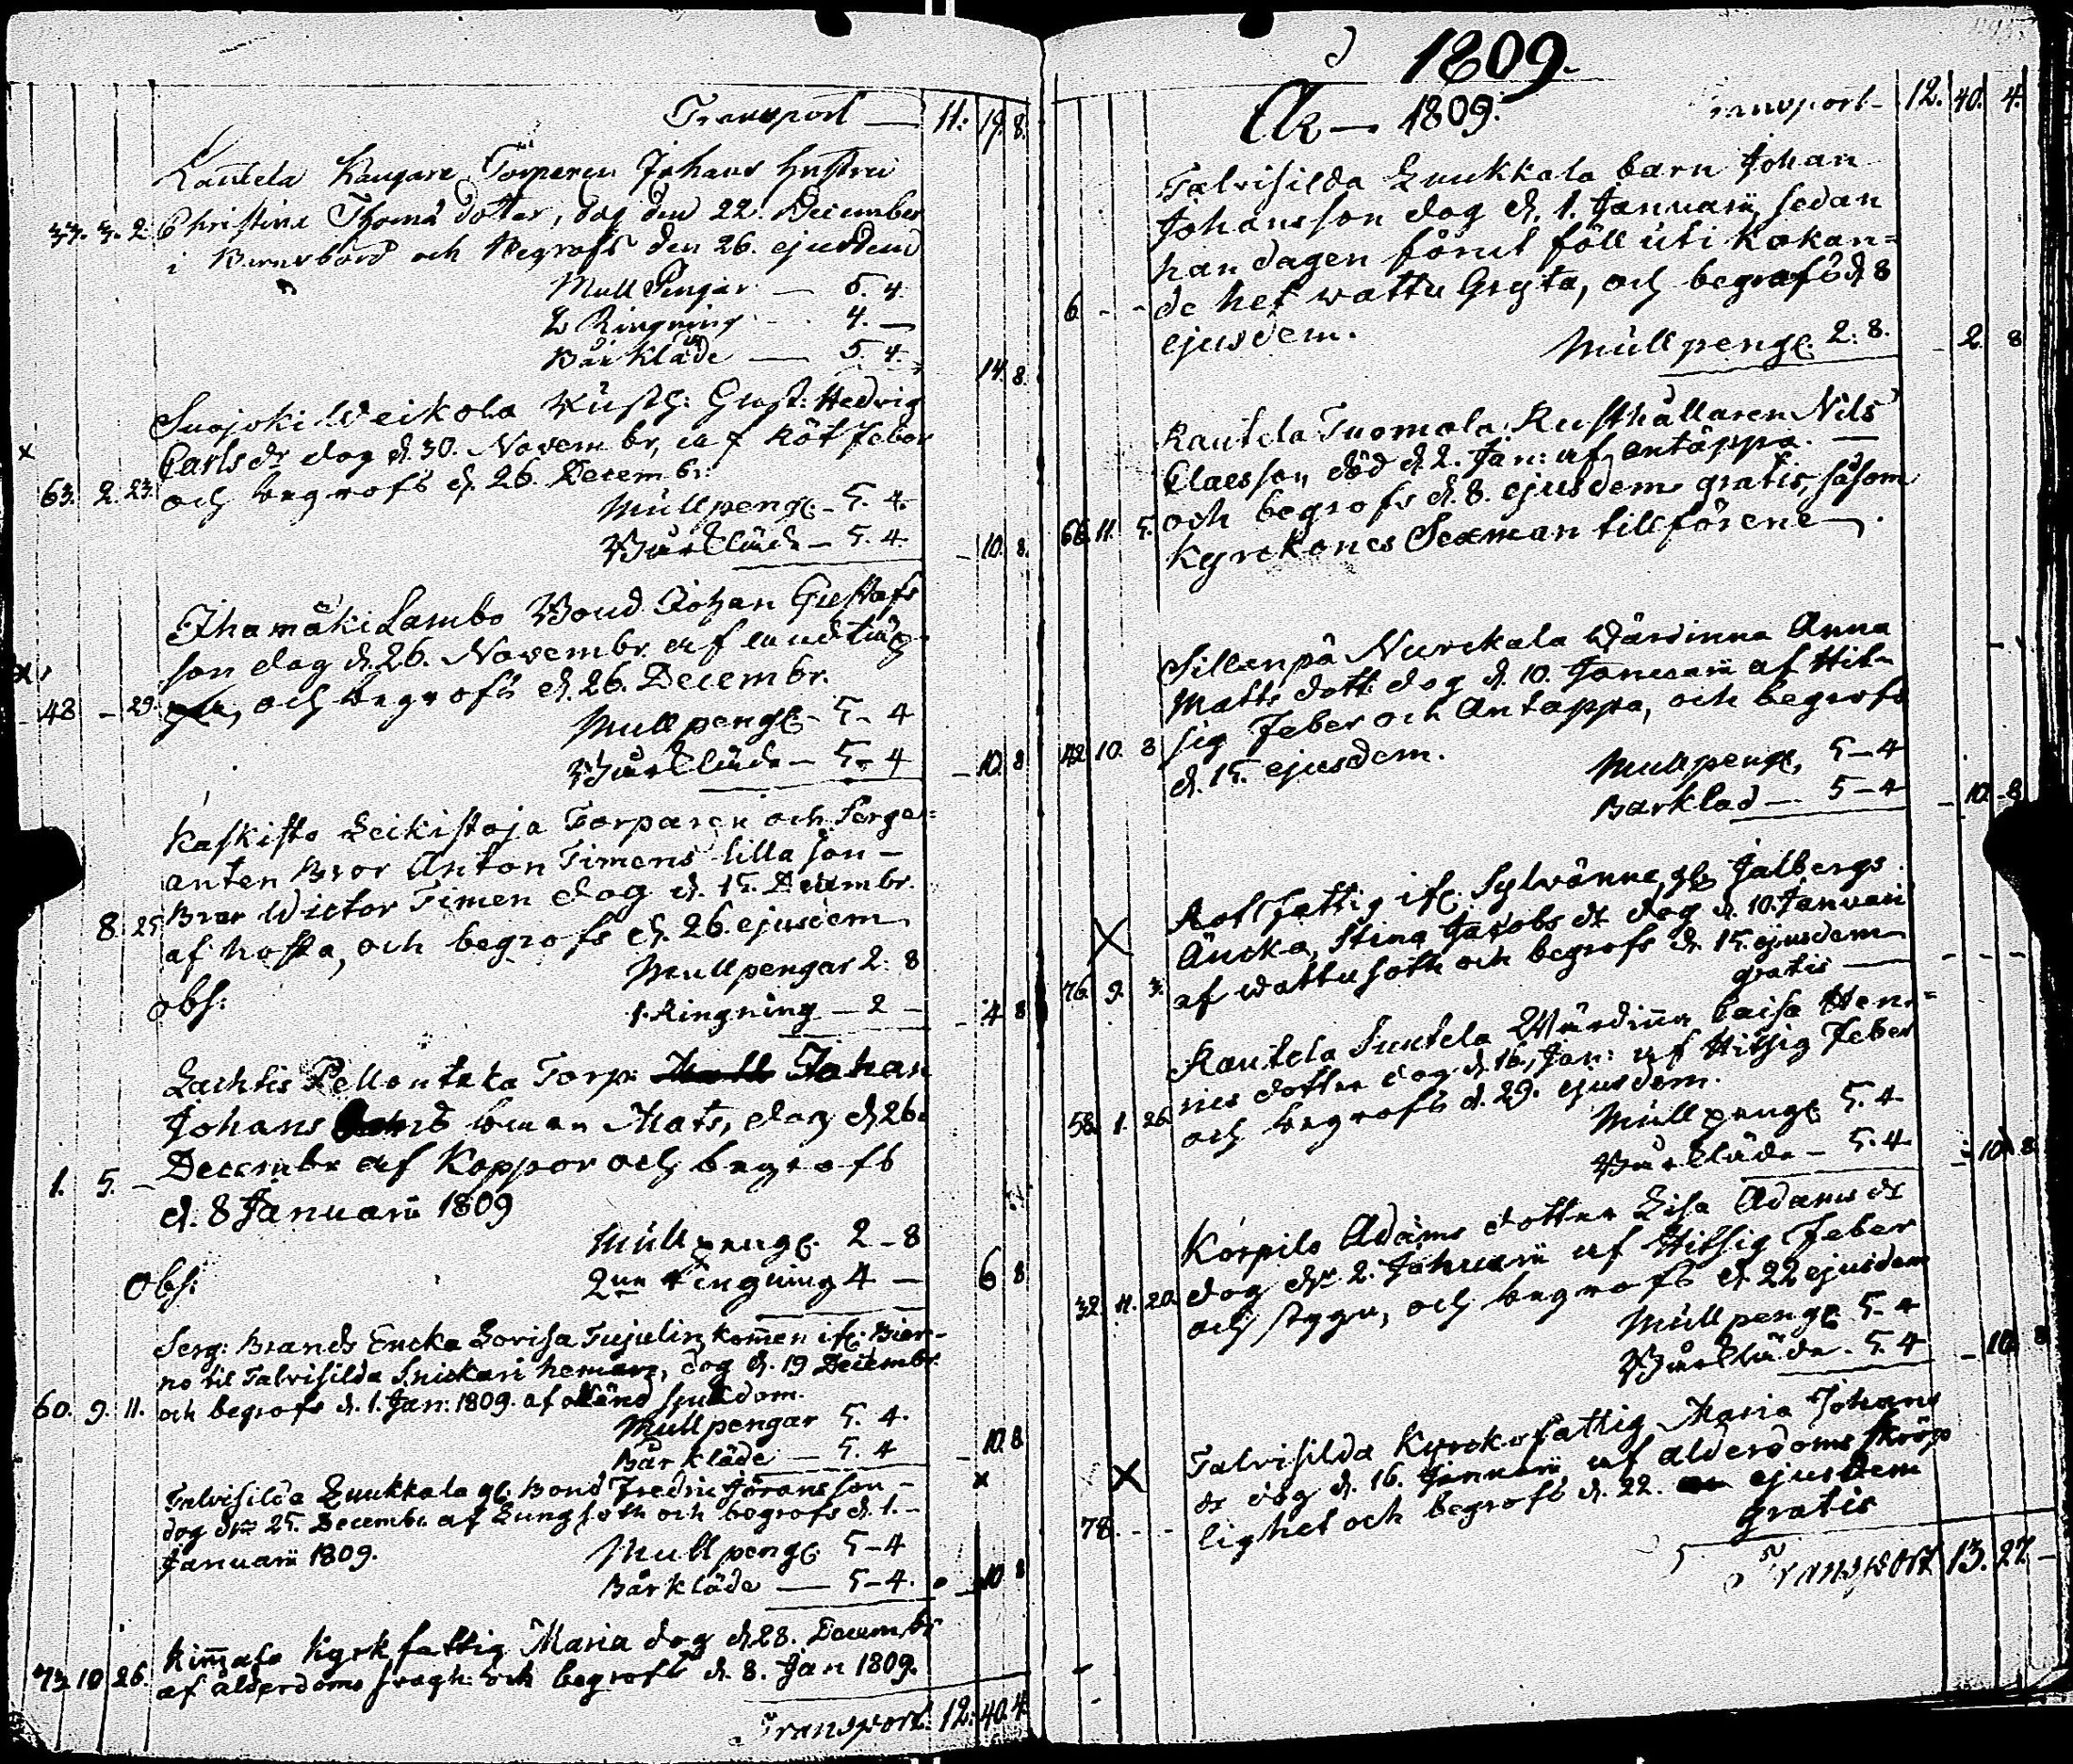 Transport — 11. 19. 8.
Rautela Kangare Torparen Johans hustru
33. 3. 2. Christina Thomä dotter, dog den 22. December
i Barnsbörd och Begrofs den 26. ejusdem
Mull Pengar — 5. 4.
2 Ringning — 4. —
Bårkläde — 5. 4. 14. 8.
Suojoki Weikola Rusth: Gust: Hedvig
Carlsdr dog d. 30. Novembr, af Röt feber
63. 2. 23. och begrofs d. 26. Decembr.
Mullpeng. — 5. 4.
Bårkläde — 5. 4. — 10. 8.
Ihamäki Lambo Bond. Johan Gustafs
son dog d. 26. Novembr. af andtäp
48 — 29. och begrofs d. 26. Decembr.
Mullpeng. — 5 — 4
Bårkläde — 5 — 4 — 10. 8
Kaskisto Leikistoja Torparen och Serge=
anten Bror Anton Timens lilla son —
8. 25 Bror Wictor Timen dog d. 15. Decembr.
af hosta, och begrofs d. 26. ejusdem
Mullpengar 2: 8
Obs: 1. Ringning — 2 — — 4 8
Lachtis Pellontaka Torp: Johan
Johans barn Mats, dog d. 26.
1. 5. — Decembr af Koppor och begrofs
d. 8 Januarii 1809
Mullpeng. 2 — 8
Obs: 2ne Ringning 4 — 6 8
Serg: Brands Encka Lovisa Tujulin, kommen ifr. Bier-
no til Talvisilda Snickari hemman, dog d. 19 Decembr.
60. 9. 11. och begrofs d. 1. Jan: 1809. af okänd sjukdom.
Mullpengar 5. 4.
Bårkläde — 5. 4 — 10. 8
Talvisilda Luukkala gl. Bond Fredric Göransson —
dog den 25. Decembr. af Lungsoth och begrofs d. 1. —
Januarii 1809.
Mullpeng. 5 — 4
Bårkläde — 5 — 4. — 10 8
Kimmasa Kyrkfattig Maria dog d. 28. Decembr
73. 10 26. af ålderdoms svagh: och begrofs d. 8. Jan 1809.
Transport. 12. 40. 4.
1809.
År — 1809. Transport — 12. 40. 4.
Talvisilda Luukkala barn Johan
Johansson dog d. 1. Januarii, sedan
han dagen förut föll uti kokan=
6. - - de het wattu Gryta, och begrafs d. 8
ejusdem.
Mullpeng. 2: 8. — 2. 8
Rautela Tuomola Rusthållaren Nils
Claesson, död d. 2. Jan: af antäppa. —
66. 11. 5. och begrofs d. 8. ejusdem gratis, såsom
Kyrckones Sexman tillförene —.
Sillenpä Nurckala Wärdinna Anna
Matts dott: dog d. 10. Januarii af Hit-
42 10. 8 sig feber och Antäppa, och begrofs
d. 15. ejusdem.
Mullpeng. 5 — 4
Barklad — 5 — 4 — 10. 8
Rotfattig ifr. Sylvänne, gl. Jalbergs
Äncka, Stina Jacobs dr dog d. 10. Januari
76. 9. 3. af wattusoth och begrofs d. 15. ejusdem
gratis — - - -
Rautela Suutela Wärdinna Caisa Hen=
58. 1. 26. rics dotter dog d. 16. Jan: af Hitsig feber
och begrofs d. 29. ejusdem.
Mullpeng. 5. 4
Bårkläde — 5. 4 — 10. 8
Korpilo Adams dotter Lisa Adams dr
dog den 2. Januarii af Hitsig feber
32. 11. 20. och stygn, och begrofs d. 22 ejusdem
Mullpeng. 5. 4
Bårkläde. 5. 4 — 10 8
Talvisilda Kyrckofattig Maria Johans
dr dog d. 16. Januarii af ålderdoms skröp
78. - - lighet och begrofs d. 22. ejusdem
gratis
Transport 13. 27. —